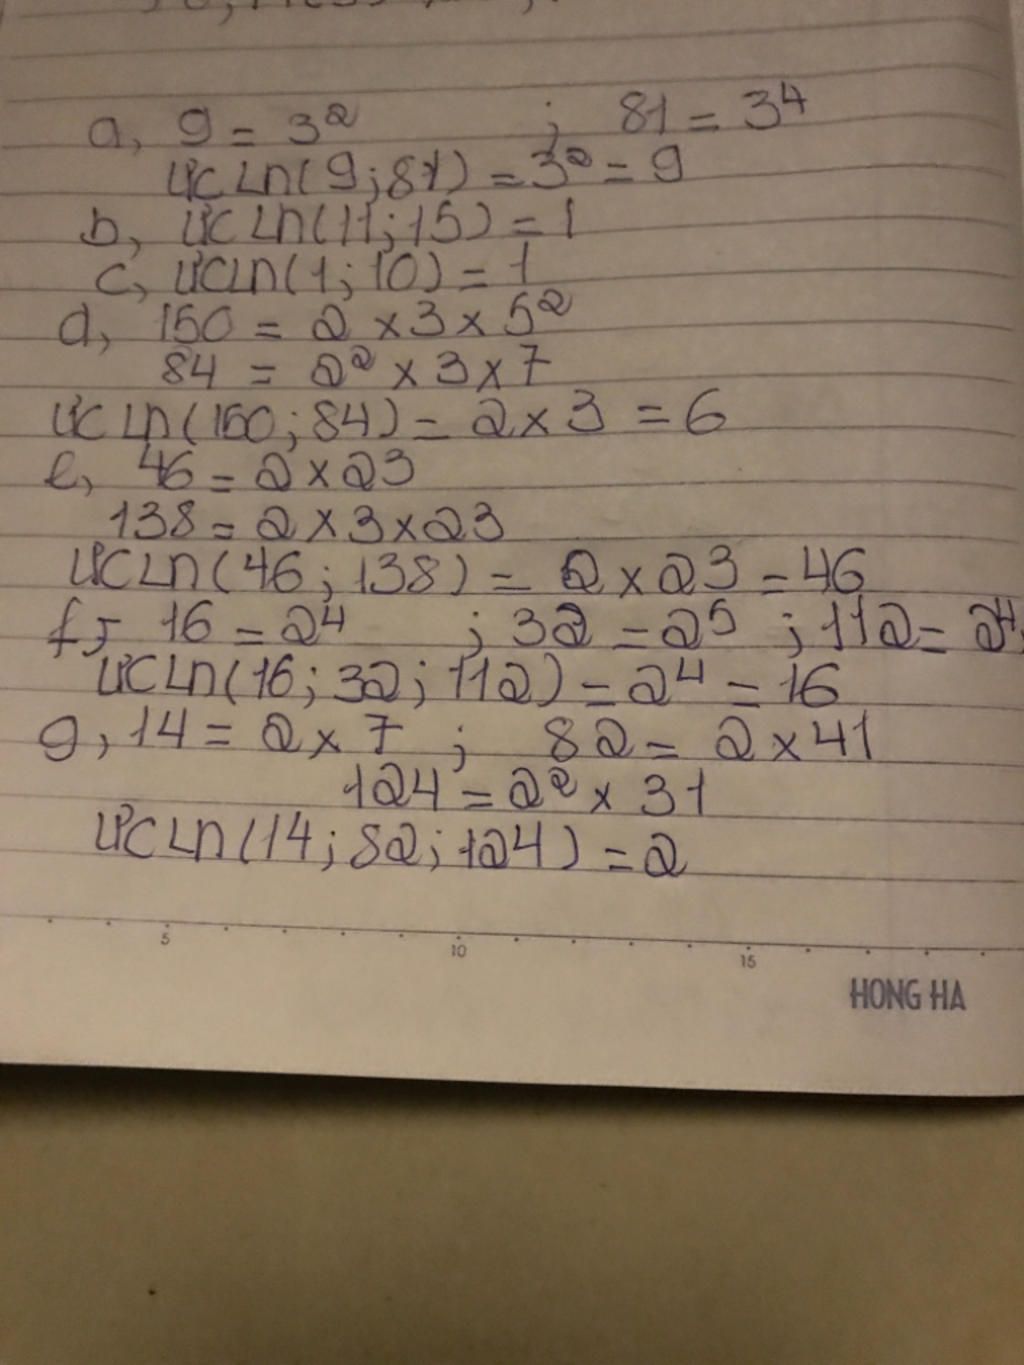 a, 9 = 3² ; 81 = 3⁴
ƯCLN(9;81) = 3² = 9
b, ƯCLN(11;15) = 1
c, ƯCLN(1;10) = 1
d, 150 = 2 x 3 x 5²
84 = 2² x 3 x 7
ƯCLN(150;84) = 2 x 3 = 6
e, 46 = 2 x 23
138 = 2 x 3 x 23
ƯCLN(46;138) = 2 x 23 = 46
f, 16 = 2⁴ ; 32 = 2⁵ ; 112 = 2⁴
ƯCLN(16;32;112) = 2⁴ = 16
g, 14 = 2 x 7 ; 82 = 2 x 41
124 = 2² x 31
ƯCLN(14;82;124) = 2
5 10 15
HONG HA